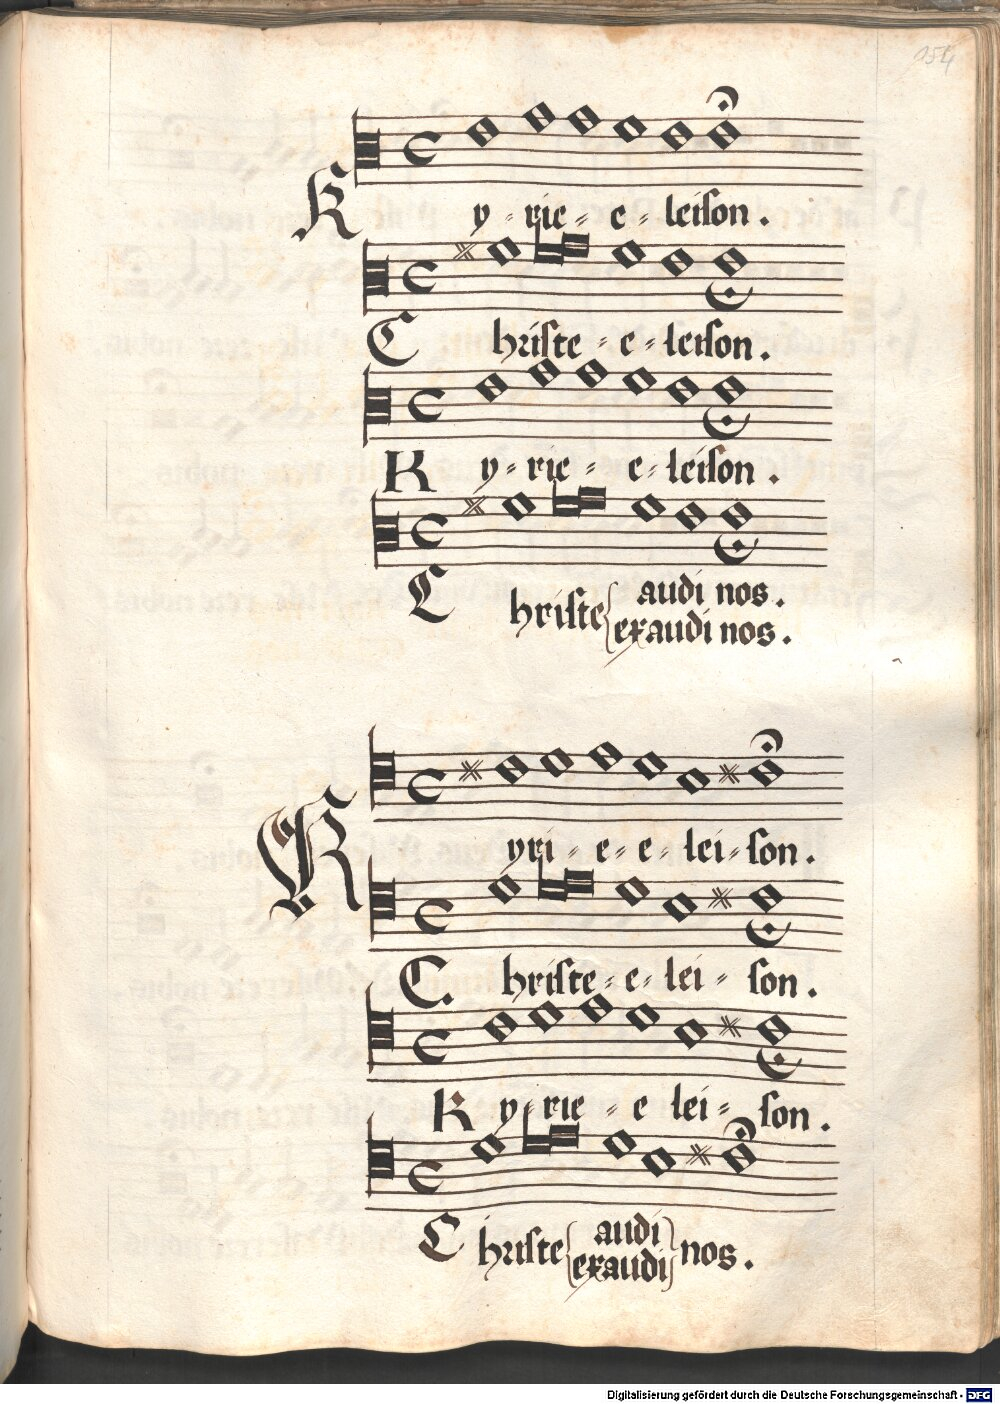 154
Ky-rie-e-leison.
Christe-e-leison.
Ky-rie-e-leison.
Christe audi nos.
exaudi nos.
Kyri-e-e-lei-son.
Christe-e-lei-son.
Ky-rie-e lei-son.
Christe audi nos.
exaudi
Digitalisierung gefördert durch die Deutsche Forschungsgemeinschaft - DFG